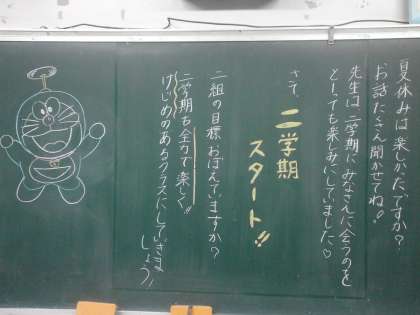 夏休みは楽しかったですか?
お話たくさん聞かせてね!
先生は二学期にみなさんに会うのを
とーっても楽しみにしていました♡
さて、二学期
スタート!!
二組の目標おぼえていますか?
二学期も全力で楽しく!!
けじめのあるクラスにしていきま
しょう!